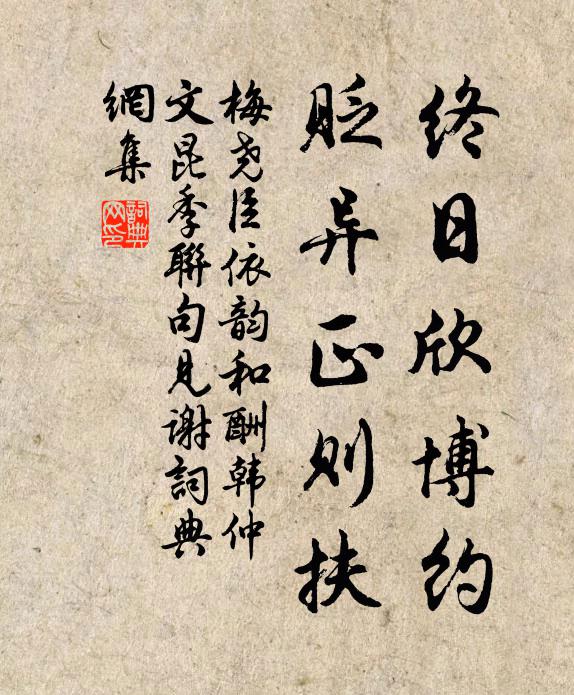 终日欣博约
贬异正则扶
梅尧臣依韵和酬韩仲
文昆季联句见谢詞典
網集
詞典
网印